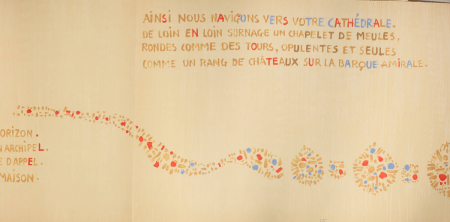 AINSI NOUS NAVIGUONS VERS VOTRE CATHÉDRALE.
DE LOIN EN LOIN SURNAGE UN CHAPELET DE MEULES,
RONDES COMME DES TOURS, OPULENTES ET SEULES
COMME UN RANG DE CHÂTEAUX SUR LA BARQUE AMIRALE.
ORIZON.
N ARCHIPEL.
E D'APPEL.
MAISON.